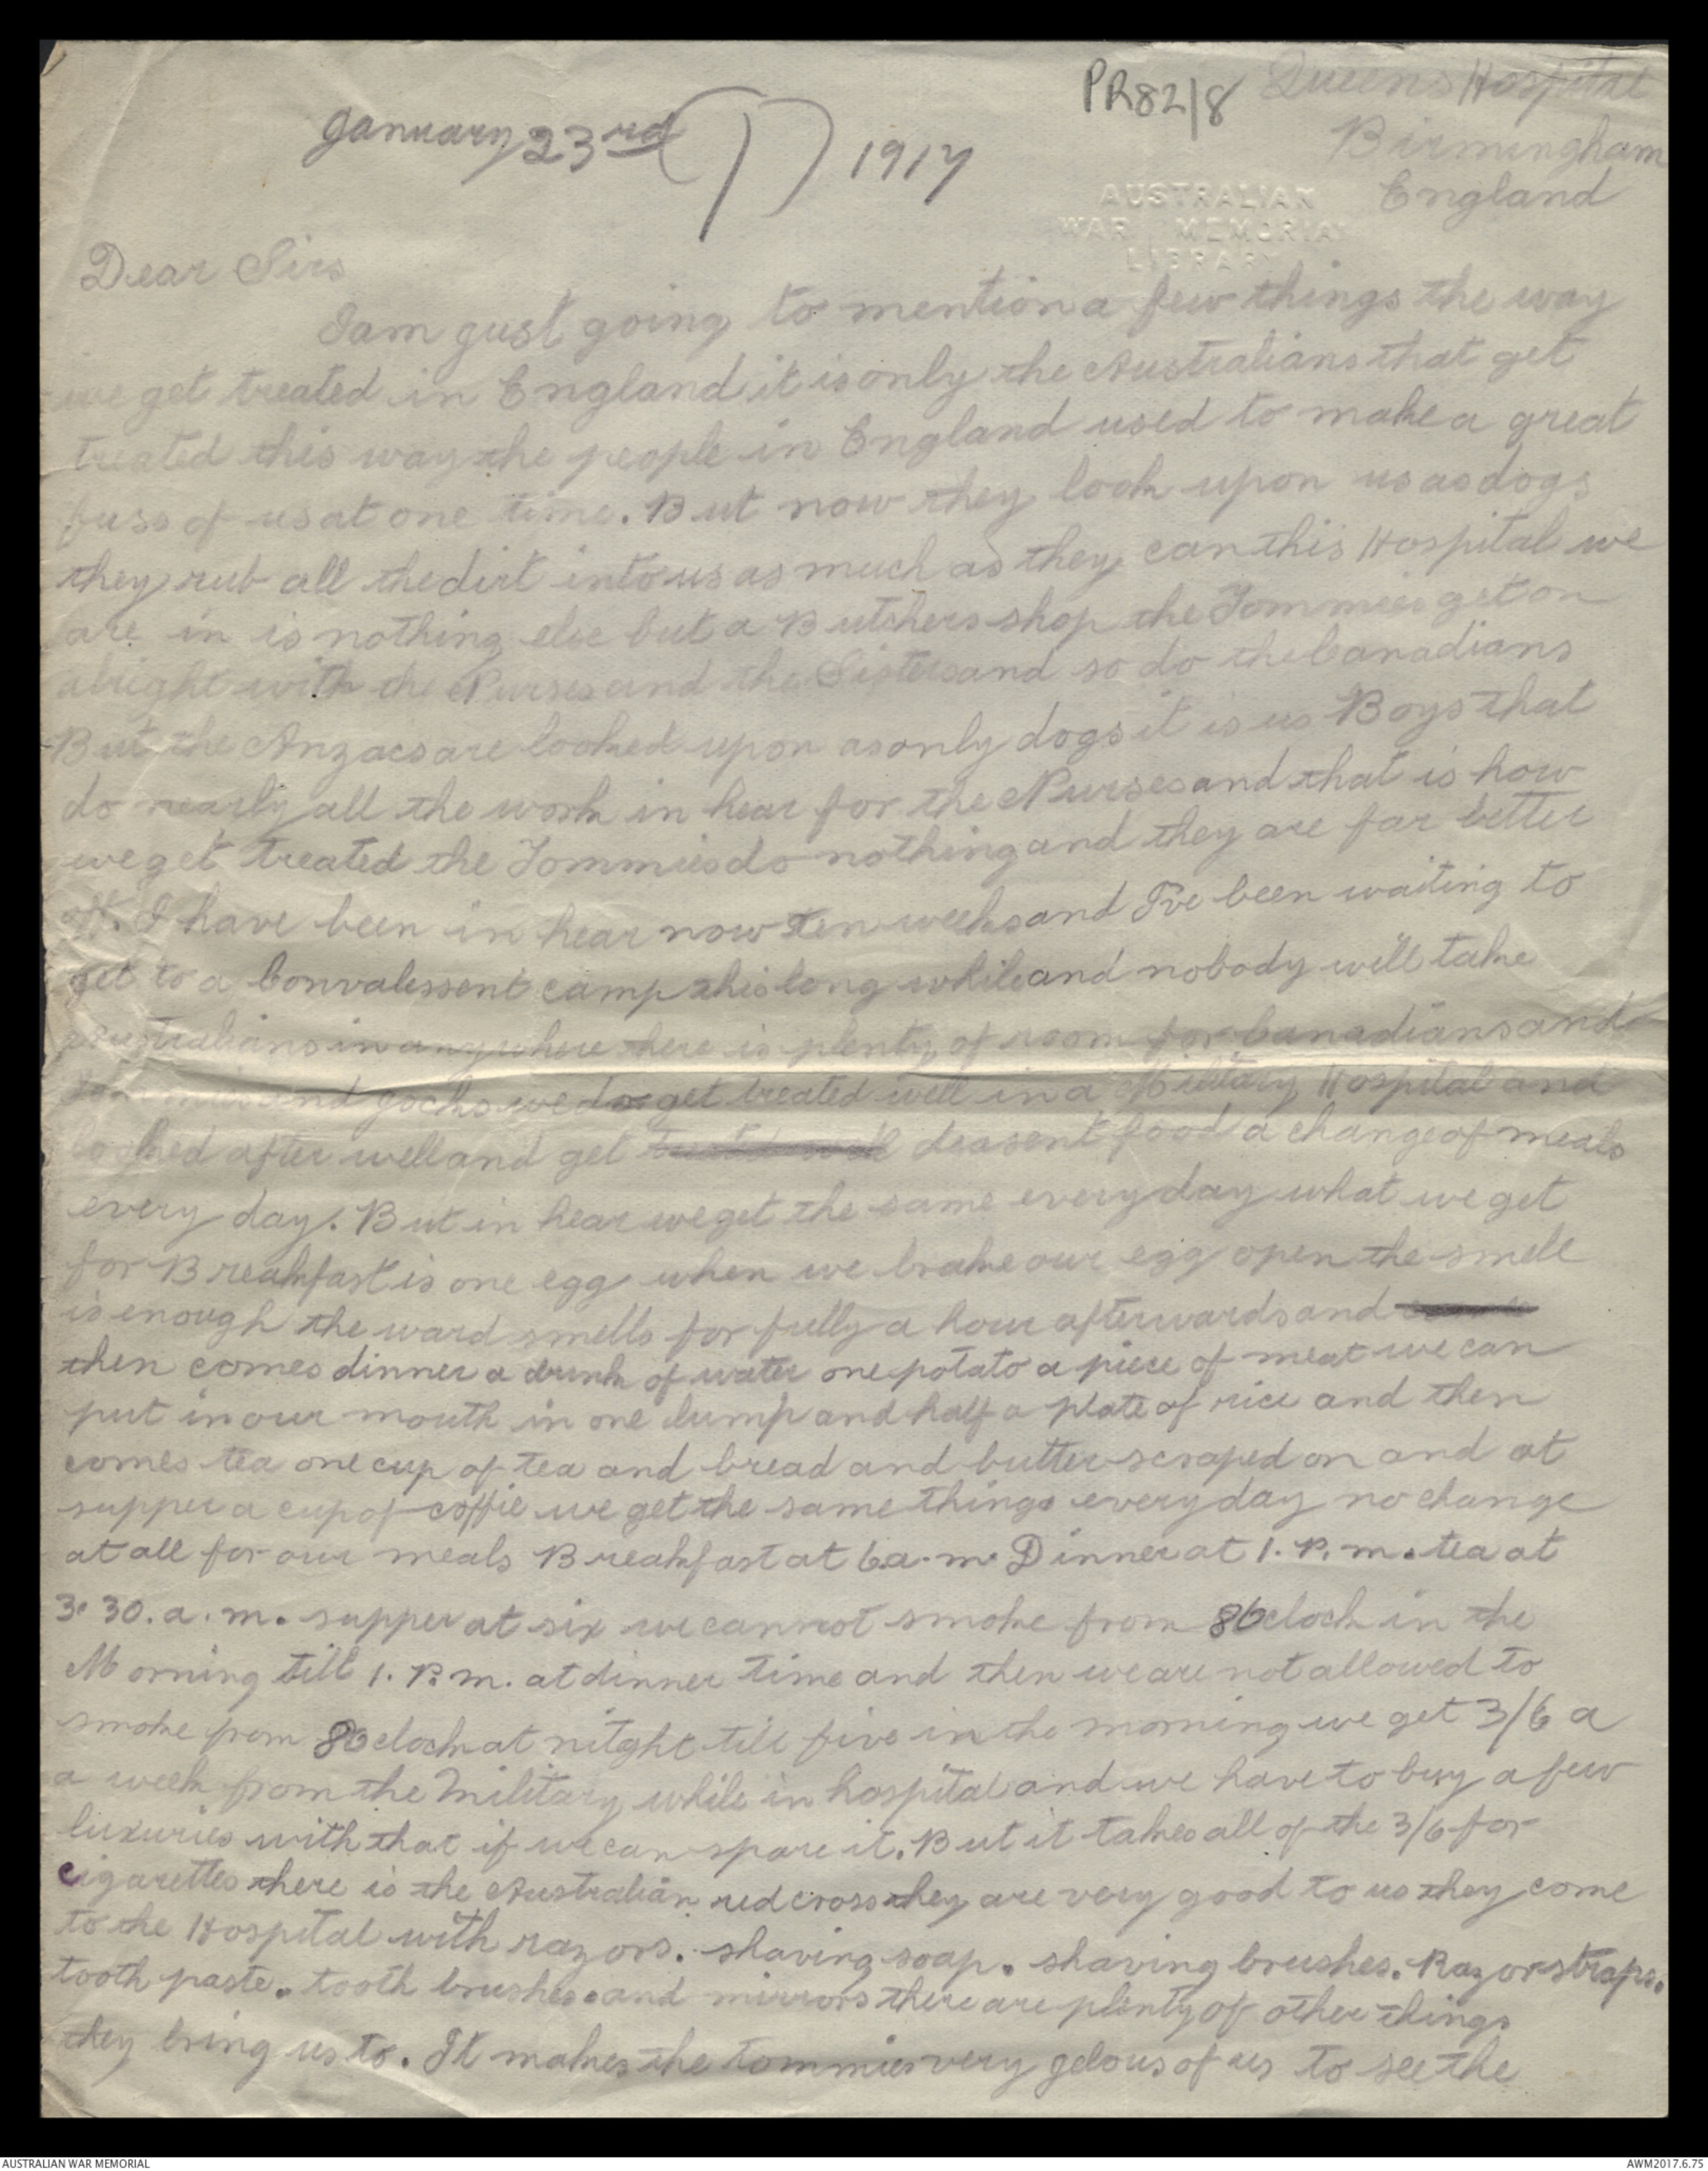 PR82/8 Queens Hospital
January 23rd (7) 1917
Birmingham
England
AUSTRALIAN
WAR MEMORIAL
LIBRARY
Dear Sirs
I am gust going to mention a few things the way
we get treated in England it is only the Australians that get
treated this way the people in England used to make a great
fuss of us at one time. But now they look upon us as dogs
they rub all the dirt into us as much as they can this Hospital we
are in is nothing else but a Butchers shop the Tommies get on
alright with the Nurses and the Sisters and so do the Canadians
But the Anzacs are looked upon as only dogs it is us Boys that
do nearly all the work in hear for the Nurses and that is how
we get treated the Tommies do nothing and they are far better
off. I have been in hear now ten weeks and I've been waiting to
get to a Convalessent camp this long while and nobody will take
Australians in anywhere there is plenty of room for Canadians and
Tommies and Jocks we do get treated well in a Military Hospital and
looked after well and get deasent food a change of meals
every day. But in hear we get the same every day what we get
for Breakfast is one egg when we brake our egg open the smell
is enough the ward smells for fully a hour afterwards and
then comes dinner a drink of water one potato a piece of meat we can
put in our mouth in one lump and half a plate of rice and then
comes tea one cup of tea and bread and butter scraped on and at
supper a cup of coffie we get the same things every day no change
at all for our meals Breakfast at 6 a.m. Dinner at 1. P. m. tea at
3.30. a. m. supper at six we cannot smoke from 8 Oclock in the
Morning till 1. P. m. at dinner time and then we are not allowed to
smoke from 8 Oclock at nitght till five in the morning we get 3/6 a
a week from the military while in hospital and we have to buy a few
luxuries with that if we can spare it. But it takes all of the 3/6 for
cigarettes there is the Australian red cross they are very good to us they come
to the Hospital with razors. shaving soap. shaving brushes. Razor straps.
tooth paste. tooth brushes. and mirrors there are plenty of other things
they bring us to. It makes the tommies very gelous of us to see the
AUSTRALIAN WAR MEMORIAL
AWM2017.6.75